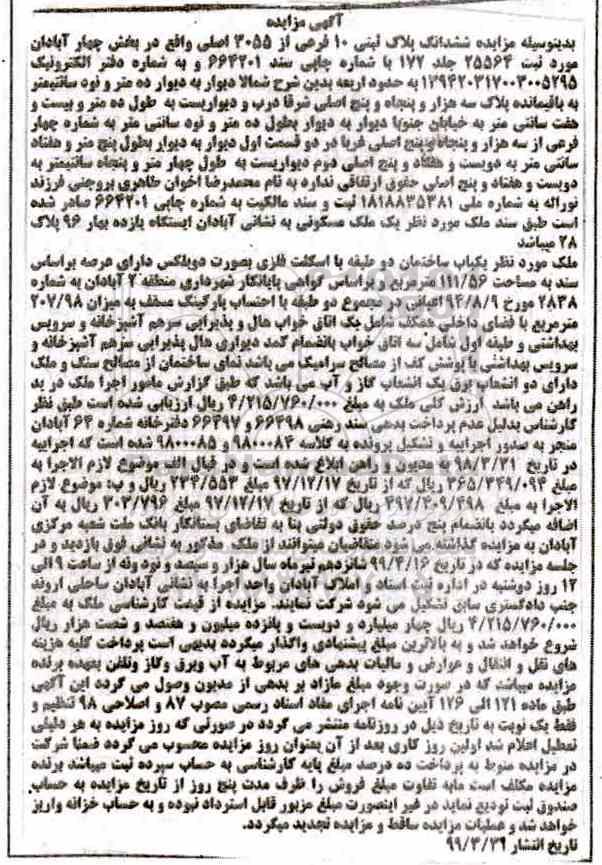 آگهی مزایده
بدینوسیله مزایده ششدانگ پلاک ثبتی ۱۰ فرعی از ۳۰۵۵ اصلی واقع در بخش چهار آبادان
مورد ثبت ۲۵۵۶۴ جلد ۱۷۷ با شماره چاپی سند ۶۶۴۲۰۱ و به شماره دفتر الکترونیک
۱۳۹۴۲۰۳۱۷۰۰۳۰۰۵۲۹۵ به حدود اربعه بدین شرح شمالا دیوار به دیوار ده متر و نود سانتیمتر
به باقیمانده پلاک سه هزار و پنجاه و پنج اصلی شرقا درب و دیواریست به طول ده متر و بیست و
هفت سانتی متر به خیابان جنوبا دیوار به دیوار بطول ده متر و نود سانتی متر به شماره چهار
فرعی از سه هزار و پنجاه و پنج اصلی غربا در دو قسمت اول دیوار به دیوار بطول پنج متر و هفتاد
سانتی متر به دویست و هفتاد و پنج اصلی دوم دیواریست به طول چهار متر و پنجاه سانتیمتر به
دویست و هفتاد و پنج اصلی حقوق ارتفاقی ندارد به نام محمدرضا اخوان طاهری بروجنی فرزند
نوراله به شماره ملی ۱۸۱۸۸۳۵۳۸۱ ثبت و سند مالکیت به شماره چاپی ۶۶۴۲۰۱ صادر شده
است طبق سند ملک مورد نظر یک ملک مسکونی به نشانی آبادان ایستگاه یازده بهار ۹۶ پلاک
۲۸ میباشد
ملک مورد نظر یکباب ساختمان دو طبقه با اسکلت فلزی بصورت دوبلکس دارای عرصه براساس
سند به مساحت ۱۱۱/۵۶ مترمربع و براساس گواهی پایانکار شهرداری منطقه ۲ آبادان به شماره
۲۸۳۸ مورخ ۹۴/۸/۹ اعیانی در مجموع دو طبقه با احتساب پارکینگ مسقف به میزان ۲۰۷/۹۸
مترمربع با فضای داخلی همکف شامل یک اتاق خواب هال و پذیرایی سرهم آشپزخانه و سرویس
بهداشتی و طبقه اول شامل سه اتاق خواب بانضمام کمد دیواری هال پذیرایی سرهم آشپزخانه و
سرویس بهداشتی با پوشش کف از مصالح سرامیک می باشد نمای ساختمان از مصالح سنگ و ملک
دارای دو انشعاب برق یک انشعاب گاز و آب می باشد که طبق گزارش مامور اجرا ملک در ید
راهن می باشد ارزش کلی ملک به مبلغ ۴/۲۱۵/۷۶۰/۰۰۰ ریال ارزیابی شده است طبق نظر
کارشناس بدلیل عدم پرداخت بدهی سند رهنی ۶۶۴۹۸ و ۶۶۴۹۷ دفترخانه شماره ۶۴ آبادان
منجر به صدور اجراییه و تشکیل پرونده به کلاسه ۹۸۰۰۰۸۴ و ۹۸۰۰۰۸۵ شده است که اجراییه
در تاریخ ۹۸/۳/۳۱ به مدیون و راهن ابلاغ شده است و در قبال الف موضوع لازم الاجرا به
مبلغ ۳۶۵/۳۴۹/۰۹۴ ریال که از تاریخ ۹۷/۱۲/۱۷ مبلغ ۲۳۴/۵۵۳ ریال و ب: موضوع لازم
الاجرا به مبلغ ۴۹۷/۴۰۹/۴۹۸ ریال که از تاریخ ۹۷/۱۲/۱۷ مبلغ ۳۰۳/۷۹۶ ریال به آن
اضافه میگردد بانضمام پنج درصد حقوق دولتی بنا به تقاضای بستانکار بانک ملت شعبه مرکزی
آبادان به مزایده گذاشته می شود متقاضیان میتوانند از ملک مذکور به نشانی فوق بازدید و در
جلسه مزایده که در تاریخ ۹۹/۴/۱۶ شانزدهم تیرماه سال هزار و سیصد و نود ونه از ساعت ۹ الی
۱۲ روز دوشنبه در اداره ثبت اسناد و املاک آبادان واحد اجرا به نشانی آبادان ساحلی اروند
جنب دادگستری سابق تشکیل می شود شرکت نمایند. مزایده از قیمت کارشناسی ملک به مبلغ
۴/۲۱۵/۷۶۰/۰۰۰ ریال چهار میلیارد و دویست و پانزده میلیون و هفتصد و شصت هزار ریال
شروع خواهد شد و به بالاترین مبلغ پیشنهادی واگذار میگردد بدیهی است پرداخت کلیه هزینه
های نقل و انتقال و عوارض و مالیات بدهی های مربوط به آب وبرق وگاز وتلفن بعهده برنده
مزایده میباشد که در صورت وجود مبلغ مازاد بر بدهی از مدیون وصول می گردد این آگهی
طبق ماده ۱۲۱ الی ۱۲۶ آیین نامه اجرای مفاد اسناد رسمی مصوب ۸۷ و اصلاحی ۹۸ تنظیم و
فقط یک نوبت به تاریخ ذیل در روزنامه منتشر می گردد در صورتی که روز مزایده به هر دلیلی
تعطیل اعلام شد اولین روز کاری بعد از آن بعنوان روز مزایده محسوب می گردد ضمنا شرکت
در مزایده منوط به پرداخت ده درصد مبلغ پایه کارشناسی به حساب سپرده ثبت میباشد برنده
مزایده مکلف است مابه تفاوت مبلغ فروش را ظرف مدت پنج روز از تاریخ مزایده به حساب
صندوق ثبت تودیع نماید در غیر اینصورت مبلغ مزبور قابل استرداد نبوده و به حساب خزانه واریز
خواهد شد و عملیات مزایده ساقط و مزایده تجدید میگردد.
تاریخ انتشار ۹۹/۳/۳۹